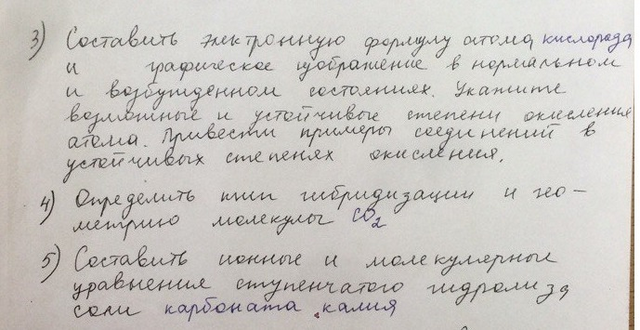 3) Составить электронную формулу атома кислорода
и графическое изображение в нормальном
и возбужденном состояниях. Укажите
возможные и устойчивые степени окисления
атома. Привести примеры соединений в
устойчивых степенях окисления.
4) Определить тип гибридизации и гео-
метрию молекулы CO2
5) Составить ионные и молекулярные
уравнения ступенчатого гидролиза
соли карбоната калия